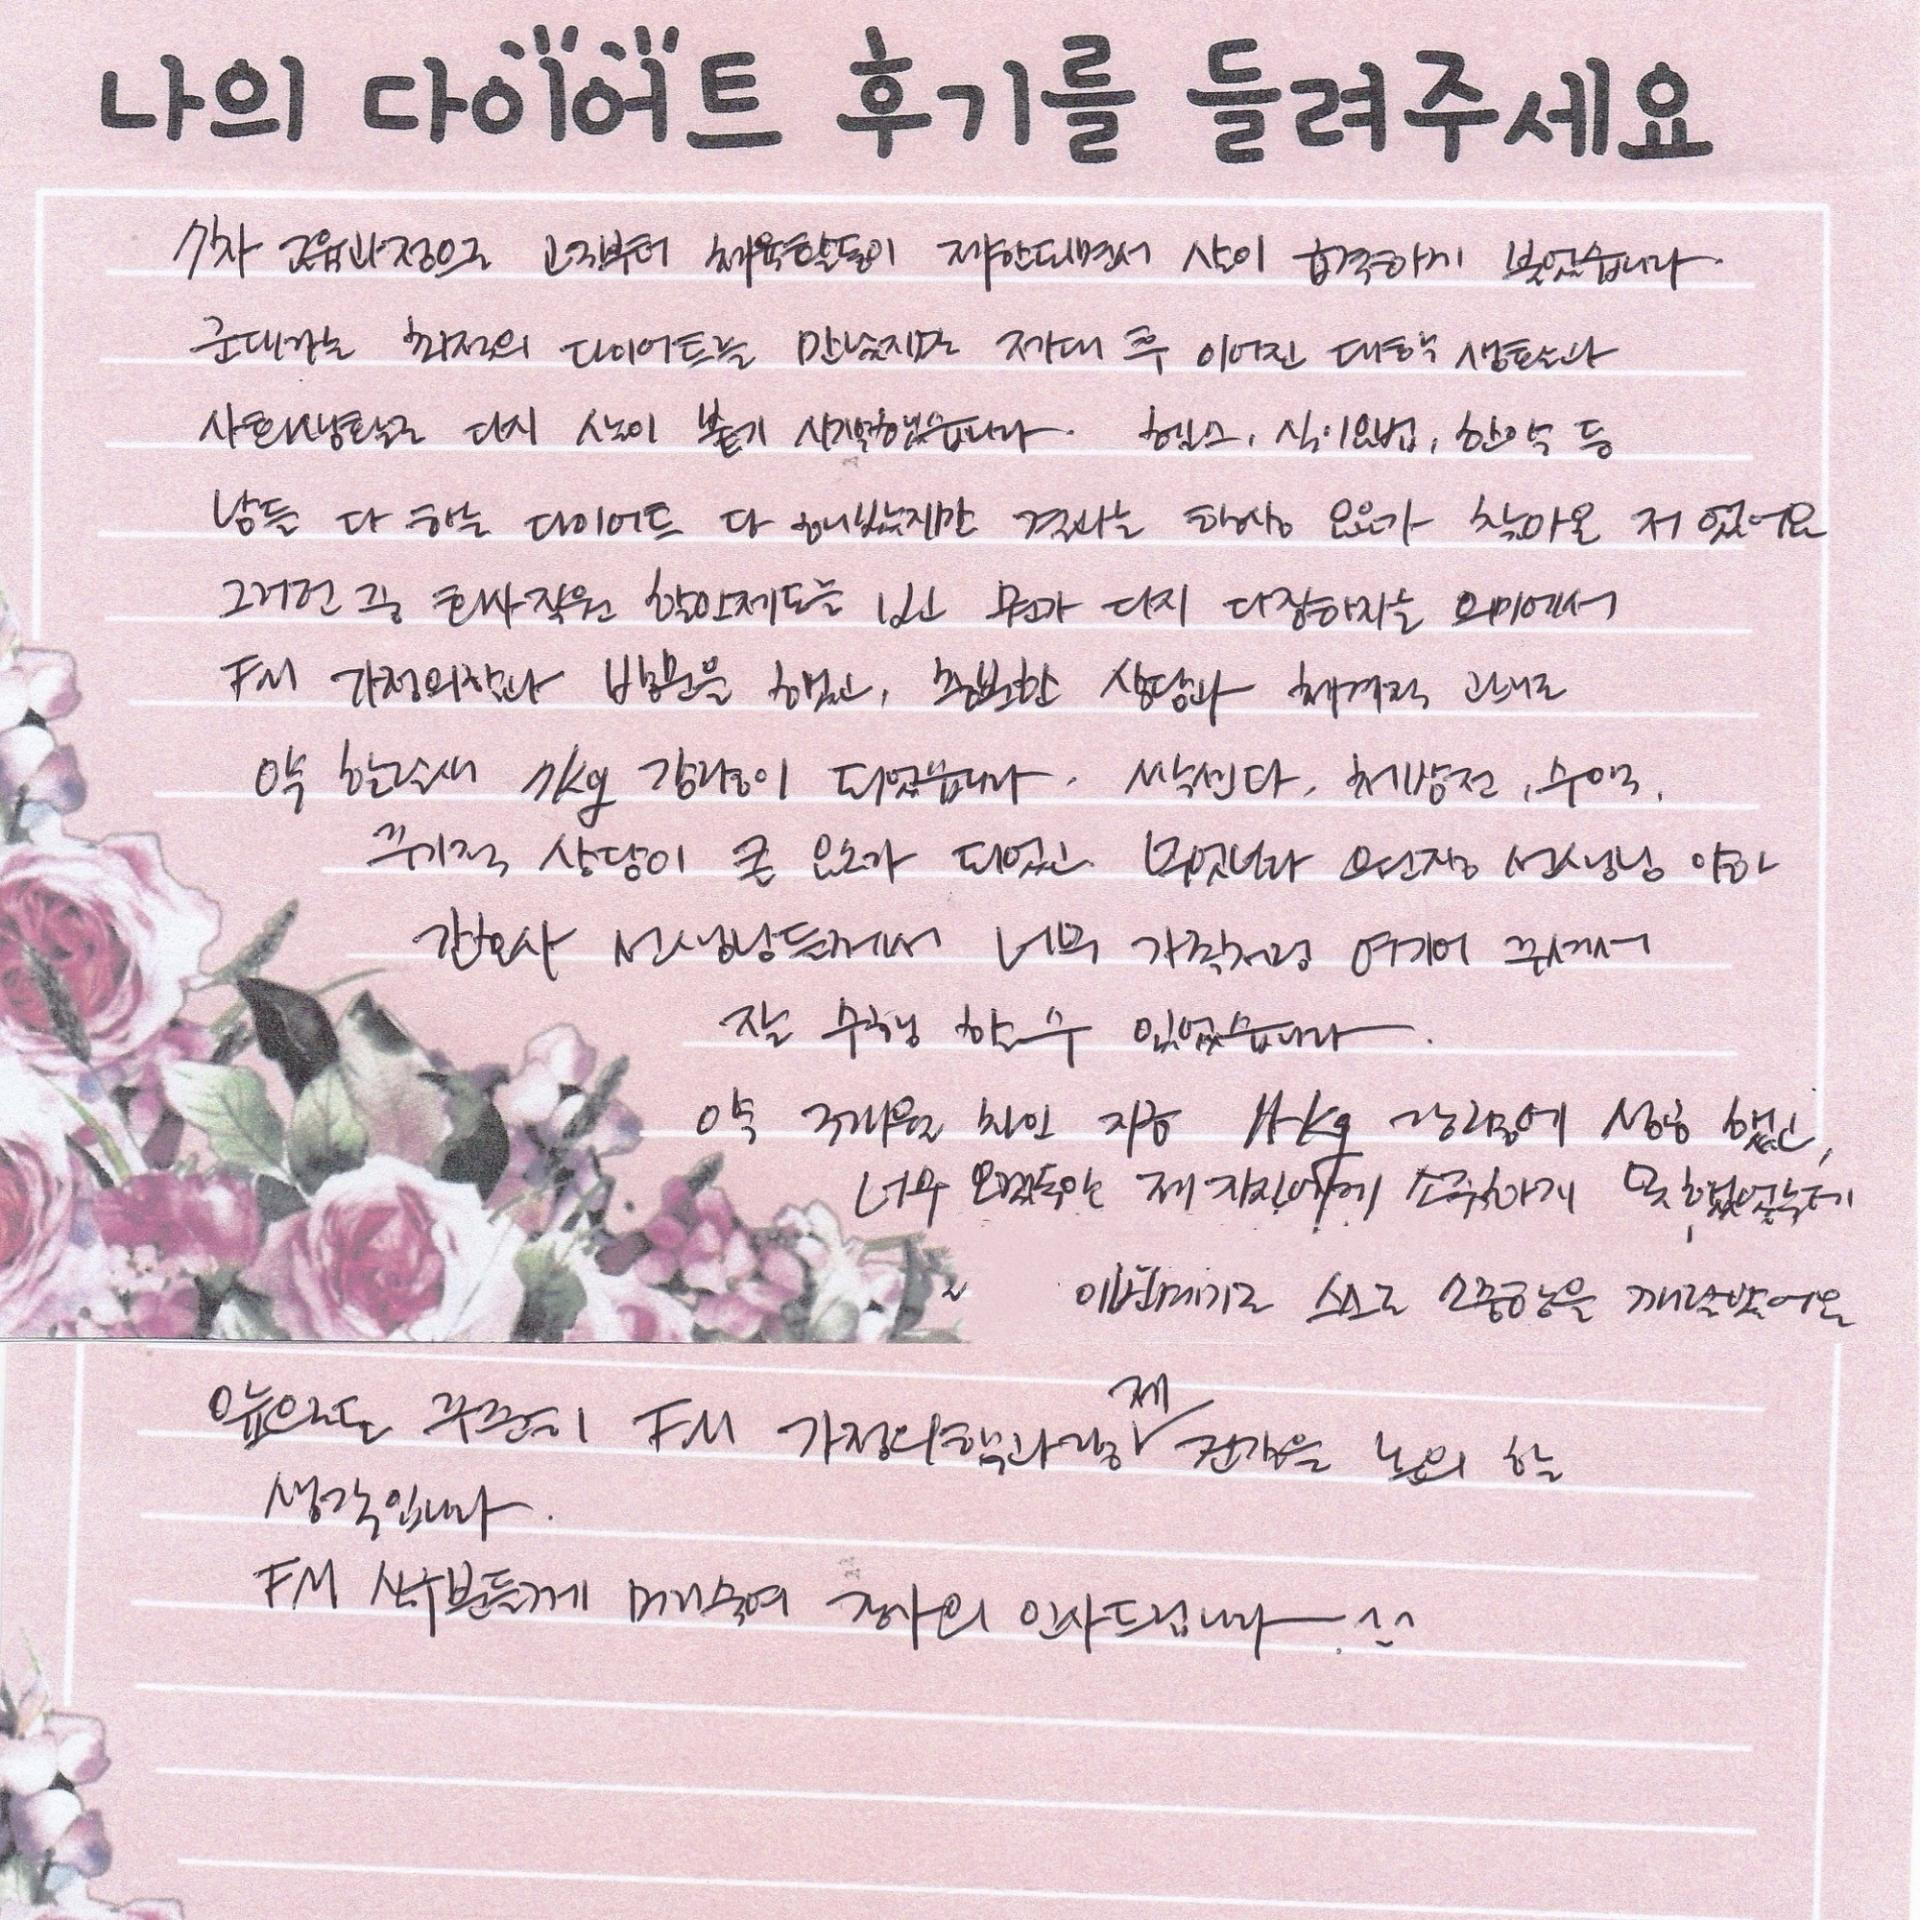 나의 다이어트 후기를 들려주세요
7차 교육과정으로 고3부터 체육활동이 제한되면서 살이 급격하게 쪘었습니다.
군대라는 최적의 다이어트를 만났지만 제대 후 이어진 대학 생활과
사회생활로 다시 살이 붙기 시작했습니다. 헬스, 식이요법, 한약 등
남들 다 하는 다이어트 다 해보았지만 결과는 항상 요요가 찾아온 저 였어요
그러던 중 회사직원 할인제도를 보고 뭔가 다시 다짐하자는 의미에서
FM 가정의학과 방문을 했고, 충분한 상담과 체계적 관리로
약 한달새 7kg 감량이 되었습니다. 삭센다, 처방전, 수액,
주기적 상담이 큰 요소가 되었고 무엇보다 원장 선생님 이하
간호사 선생님들께서 너무 가족처럼 여기어 주셔서
잘 수행 할 수 있었습니다.
약 3개월 차인 지금 11kg 감량에 성공 했고,
너무 오랫동안 제 자신에게 소중하게 못했었는데
이번계기로 스스로 소중함을 깨달았어요
앞으로도 꾸준히 FM 가정의학과랑 제 건강을 논의 할
생각입니다.
FM 식구분들께 머리숙여 감사의 인사드립니다. ^^